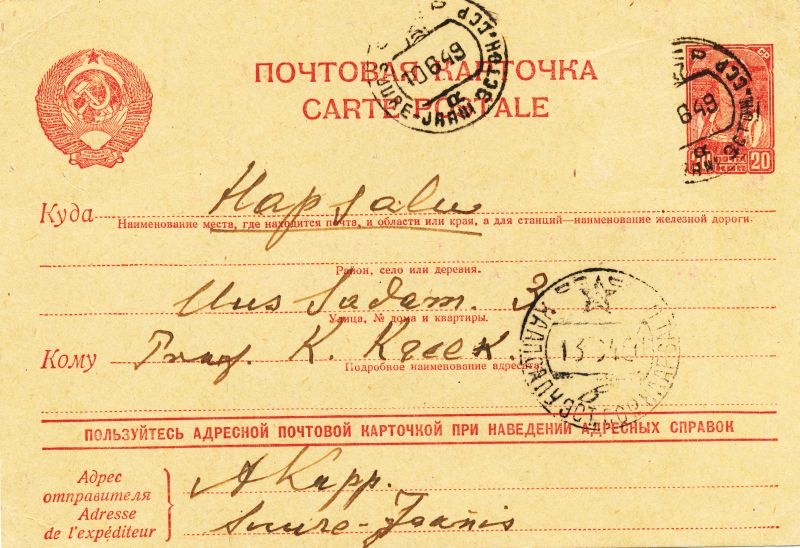 ПОЧТОВАЯ КАРТОЧКА
CARTE POSTALE
10 6 49
SUURE-JAANI ЭСТОН. ССР
6 49
20
Куда Hapsalu
Наименование места, где находится почта, и области или края, а для станций—наименование железной дороги.
Район, село или деревня.
Uus Sadam. 3.
Улица, № дома и квартиры.
Кому K. Kreek.
Подробное наименование адресата.
ПОЛЬЗУЙТЕСЬ АДРЕСНОЙ ПОЧТОВОЙ КАРТОЧКОЙ ПРИ НАВЕДЕНИИ АДРЕСНЫХ СПРАВОК
Адрес
отправителя
Adresse
de l'expéditeur
A Kapp.
Suure-Jaanis